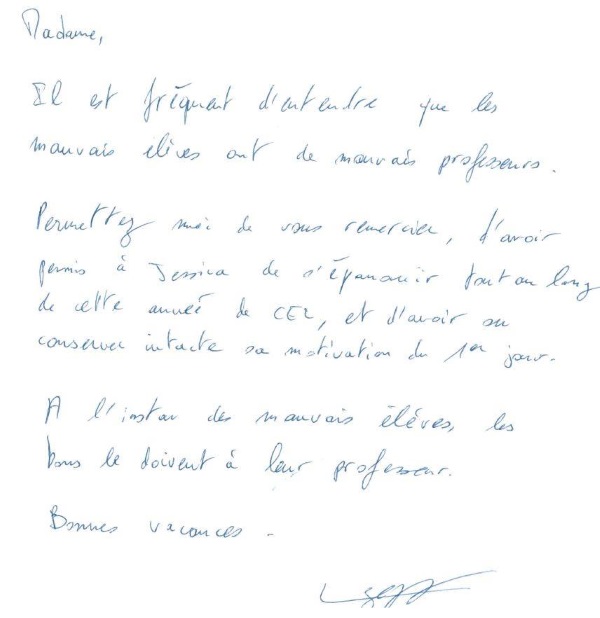 Madame,
Il est fréquent d'entendre que les
mauvais élèves ont de mauvais professeurs.
Permettez moi de vous remercier, d'avoir
permis à Jessica de s'épanouir tout au long
de cette année de CE2, et d'avoir su
conserver intacte sa motivation du 1er jour.
A l'instar des mauvais élèves, les
bons le doivent à leur professeur.
Bonnes vacances.